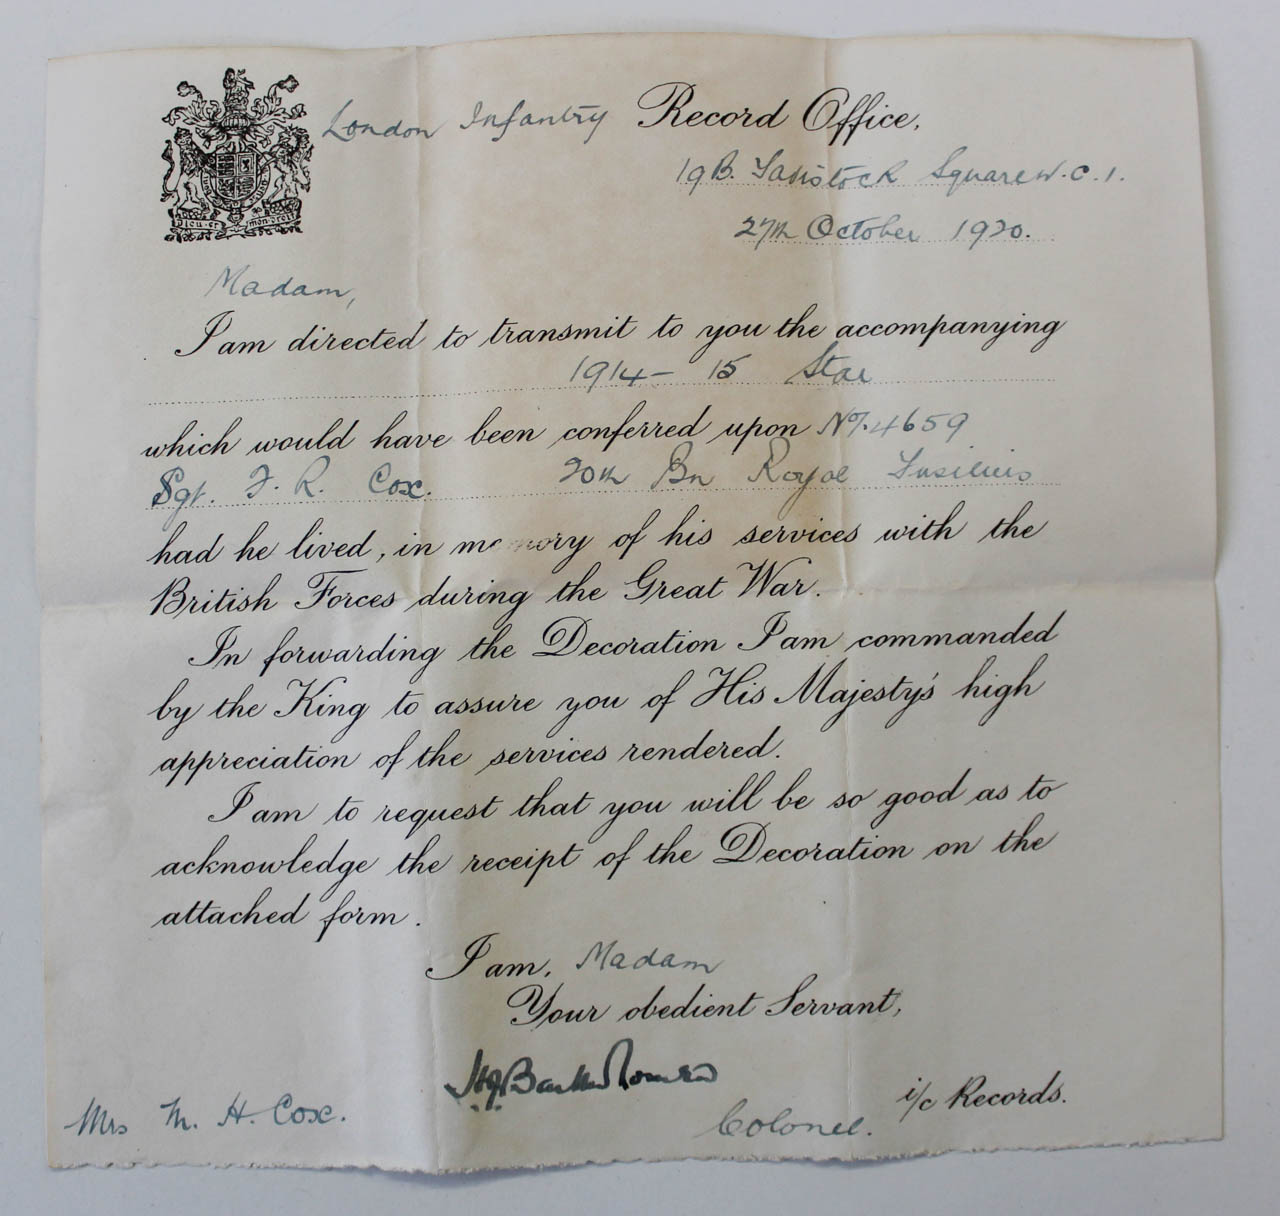 London Infantry Record Office,
19B. Tavistock Square W.C.1.
27th October 1920.
Dieu et mon droit
Madam,
I am directed to transmit to you the accompanying
1914-15 Star
which would have been conferred upon No. 4659
Sgt. F. R. Cox. 20th Bn Royal Fusiliers
had he lived, in memory of his services with the
British Forces during the Great War.
In forwarding the Decoration I am commanded
by the King to assure you of His Majesty's high
appreciation of the services rendered.
I am to request that you will be so good as to
acknowledge the receipt of the Decoration on the
attached form.
I am, Madam
Your obedient Servant,
Colonel. i/c Records.
Mrs M. H. Cox.